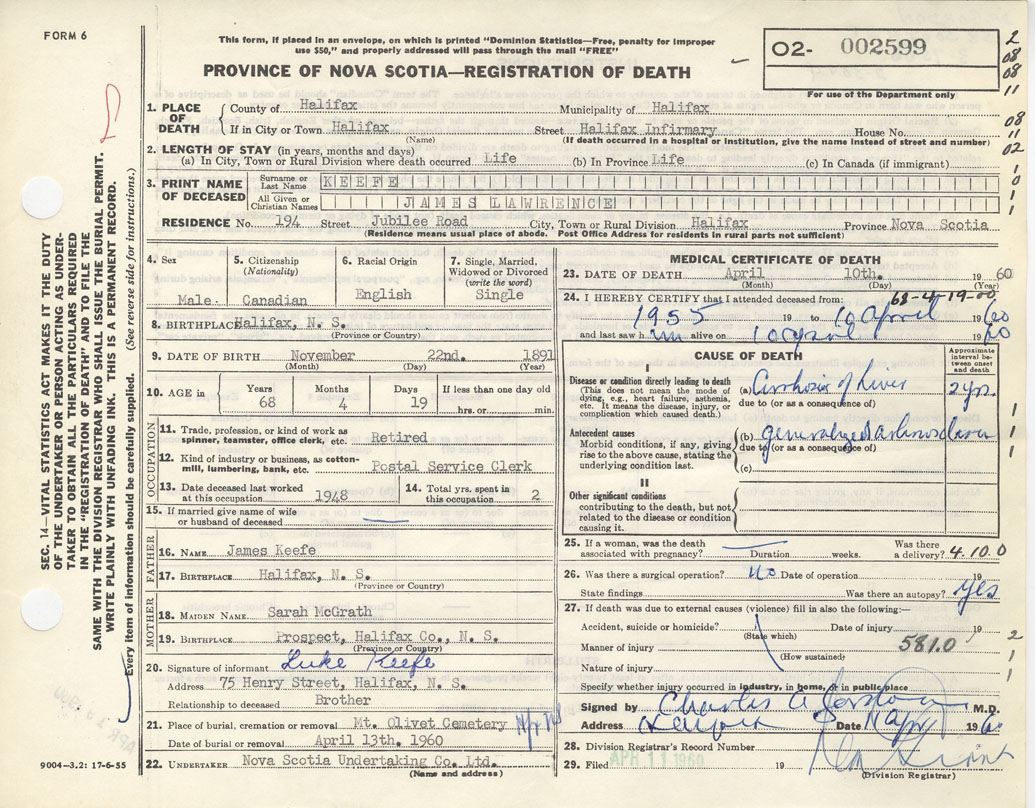 FORM 6
This form, if placed in an envelope, on which is printed "Dominion Statistics—Free, penalty for improper
use $50," and properly addressed will pass through the mail "FREE"
PROVINCE OF NOVA SCOTIA—REGISTRATION OF DEATH
O2- 002599
For use of the Department only
2
08
08
11
08
11
02
1. PLACE OF DEATH
County of Halifax Municipality of Halifax
If in City or Town Halifax Street Halifax Infirmary House No.
(Name) (If death occurred in a hospital or institution, give the name instead of street and number)
2. LENGTH OF STAY (in years, months and days)
(a) In City, Town or Rural Division where death occurred Life (b) In Province Life (c) In Canada (if immigrant)
3. PRINT NAME OF DECEASED
Surname or Last Name KEEFE
All Given or Christian Names JAMES LAWRENCE
RESIDENCE No. 194 Street Jubilee Road City, Town or Rural Division Halifax Province Nova Scotia
(Residence means usual place of abode. Post Office Address for residents in rural parts not sufficient)
4. Sex
Male.
5. Citizenship
(Nationality)
Canadian
6. Racial Origin
English
7. Single, Married,
Widowed or Divorced
(write the word)
Single
8. BIRTHPLACE Halifax, N. S.
(Province or Country)
9. DATE OF BIRTH November 22nd. 1891
(Month) (Day) (Year)
10. AGE in
Years Months Days If less than one day old
68 4 19 hrs. or min.
OCCUPATION
11. Trade, profession, or kind of work as
spinner, teamster, office clerk, etc. Retired
12. Kind of industry or business, as cotton-
mill, lumbering, bank, etc. Postal Service Clerk
13. Date deceased last worked
at this occupation 1948
14. Total yrs. spent in
this occupation 2
15. If married give name of wife
or husband of deceased
FATHER
16. NAME James Keefe
17. BIRTHPLACE Halifax, N. S.
(Province or Country)
MOTHER
18. MAIDEN NAME Sarah McGrath
19. BIRTHPLACE Prospect, Halifax Co., N. S.
(Province or Country)
20. Signature of informant Luke Keefe
Address 75 Henry Street, Halifax, N. S.
Relationship to deceased Brother
21. Place of burial, cremation or removal Mt. Olivet Cemetery
Date of burial or removal April 13th. 1960
22. UNDERTAKER Nova Scotia Undertaking Co. Ltd.
(Name and address)
MEDICAL CERTIFICATE OF DEATH
23. DATE OF DEATH April 10th. 1960
(Month) (Day) (Year)
68-4-19-00
24. I HEREBY CERTIFY that I attended deceased from:
1955 19 to 10 April 1960
and last saw him alive on 10 April 1960
CAUSE OF DEATH
Approximate
interval between
onset
and death
I
Disease or condition directly leading to death
(This does not mean the mode of
dying, e.g., heart failure, asthenia,
etc. It means the disease, injury, or
complication which caused death.)
(a) Cirrhosis of Liver 2 yrs.
due to (or as a consequence of)
Antecedent causes
Morbid conditions, if any, giving
rise to the above cause, stating the
underlying condition last.
(b) generalized
due to (or as a consequence of)
(c)
II
Other significant conditions
contributing to the death, but not
related to the disease or condition
causing it.
25. If a woman, was the death
associated with pregnancy? Duration weeks.
Was there
a delivery? 4.10.0
26. Was there a surgical operation? No Date of operation 19
State findings Was there an autopsy? yes
27. If death was due to external causes (violence) fill in also the following:—
Accident, suicide or homicide? Date of injury 19
(State which)
Manner of injury 581.0
(How sustained)
Nature of injury
Specify whether injury occurred in industry, in home, or in public place
Signed by Charles M.D.
Address Halifax Date 11 Apr 1960
28. Division Registrar's Record Number
29. Filed APR 11 1960 19
(Division Registrar)
SEC. 14—VITAL STATISTICS ACT MAKES IT THE DUTY
OF THE UNDERTAKER OR PERSON ACTING AS UNDER-
TAKER TO OBTAIN ALL THE PARTICULARS REQUIRED
IN THE "REGISTRATION OF DEATH" AND TO FILE THE
SAME WITH THE DIVISION REGISTRAR WHO SHALL ISSUE THE BURIAL PERMIT.
WRITE PLAINLY WITH UNFADING INK. THIS IS A PERMANENT RECORD.
Every item of information should be carefully supplied. (See reverse side for instructions.)
9004-3.2: 17-6-55